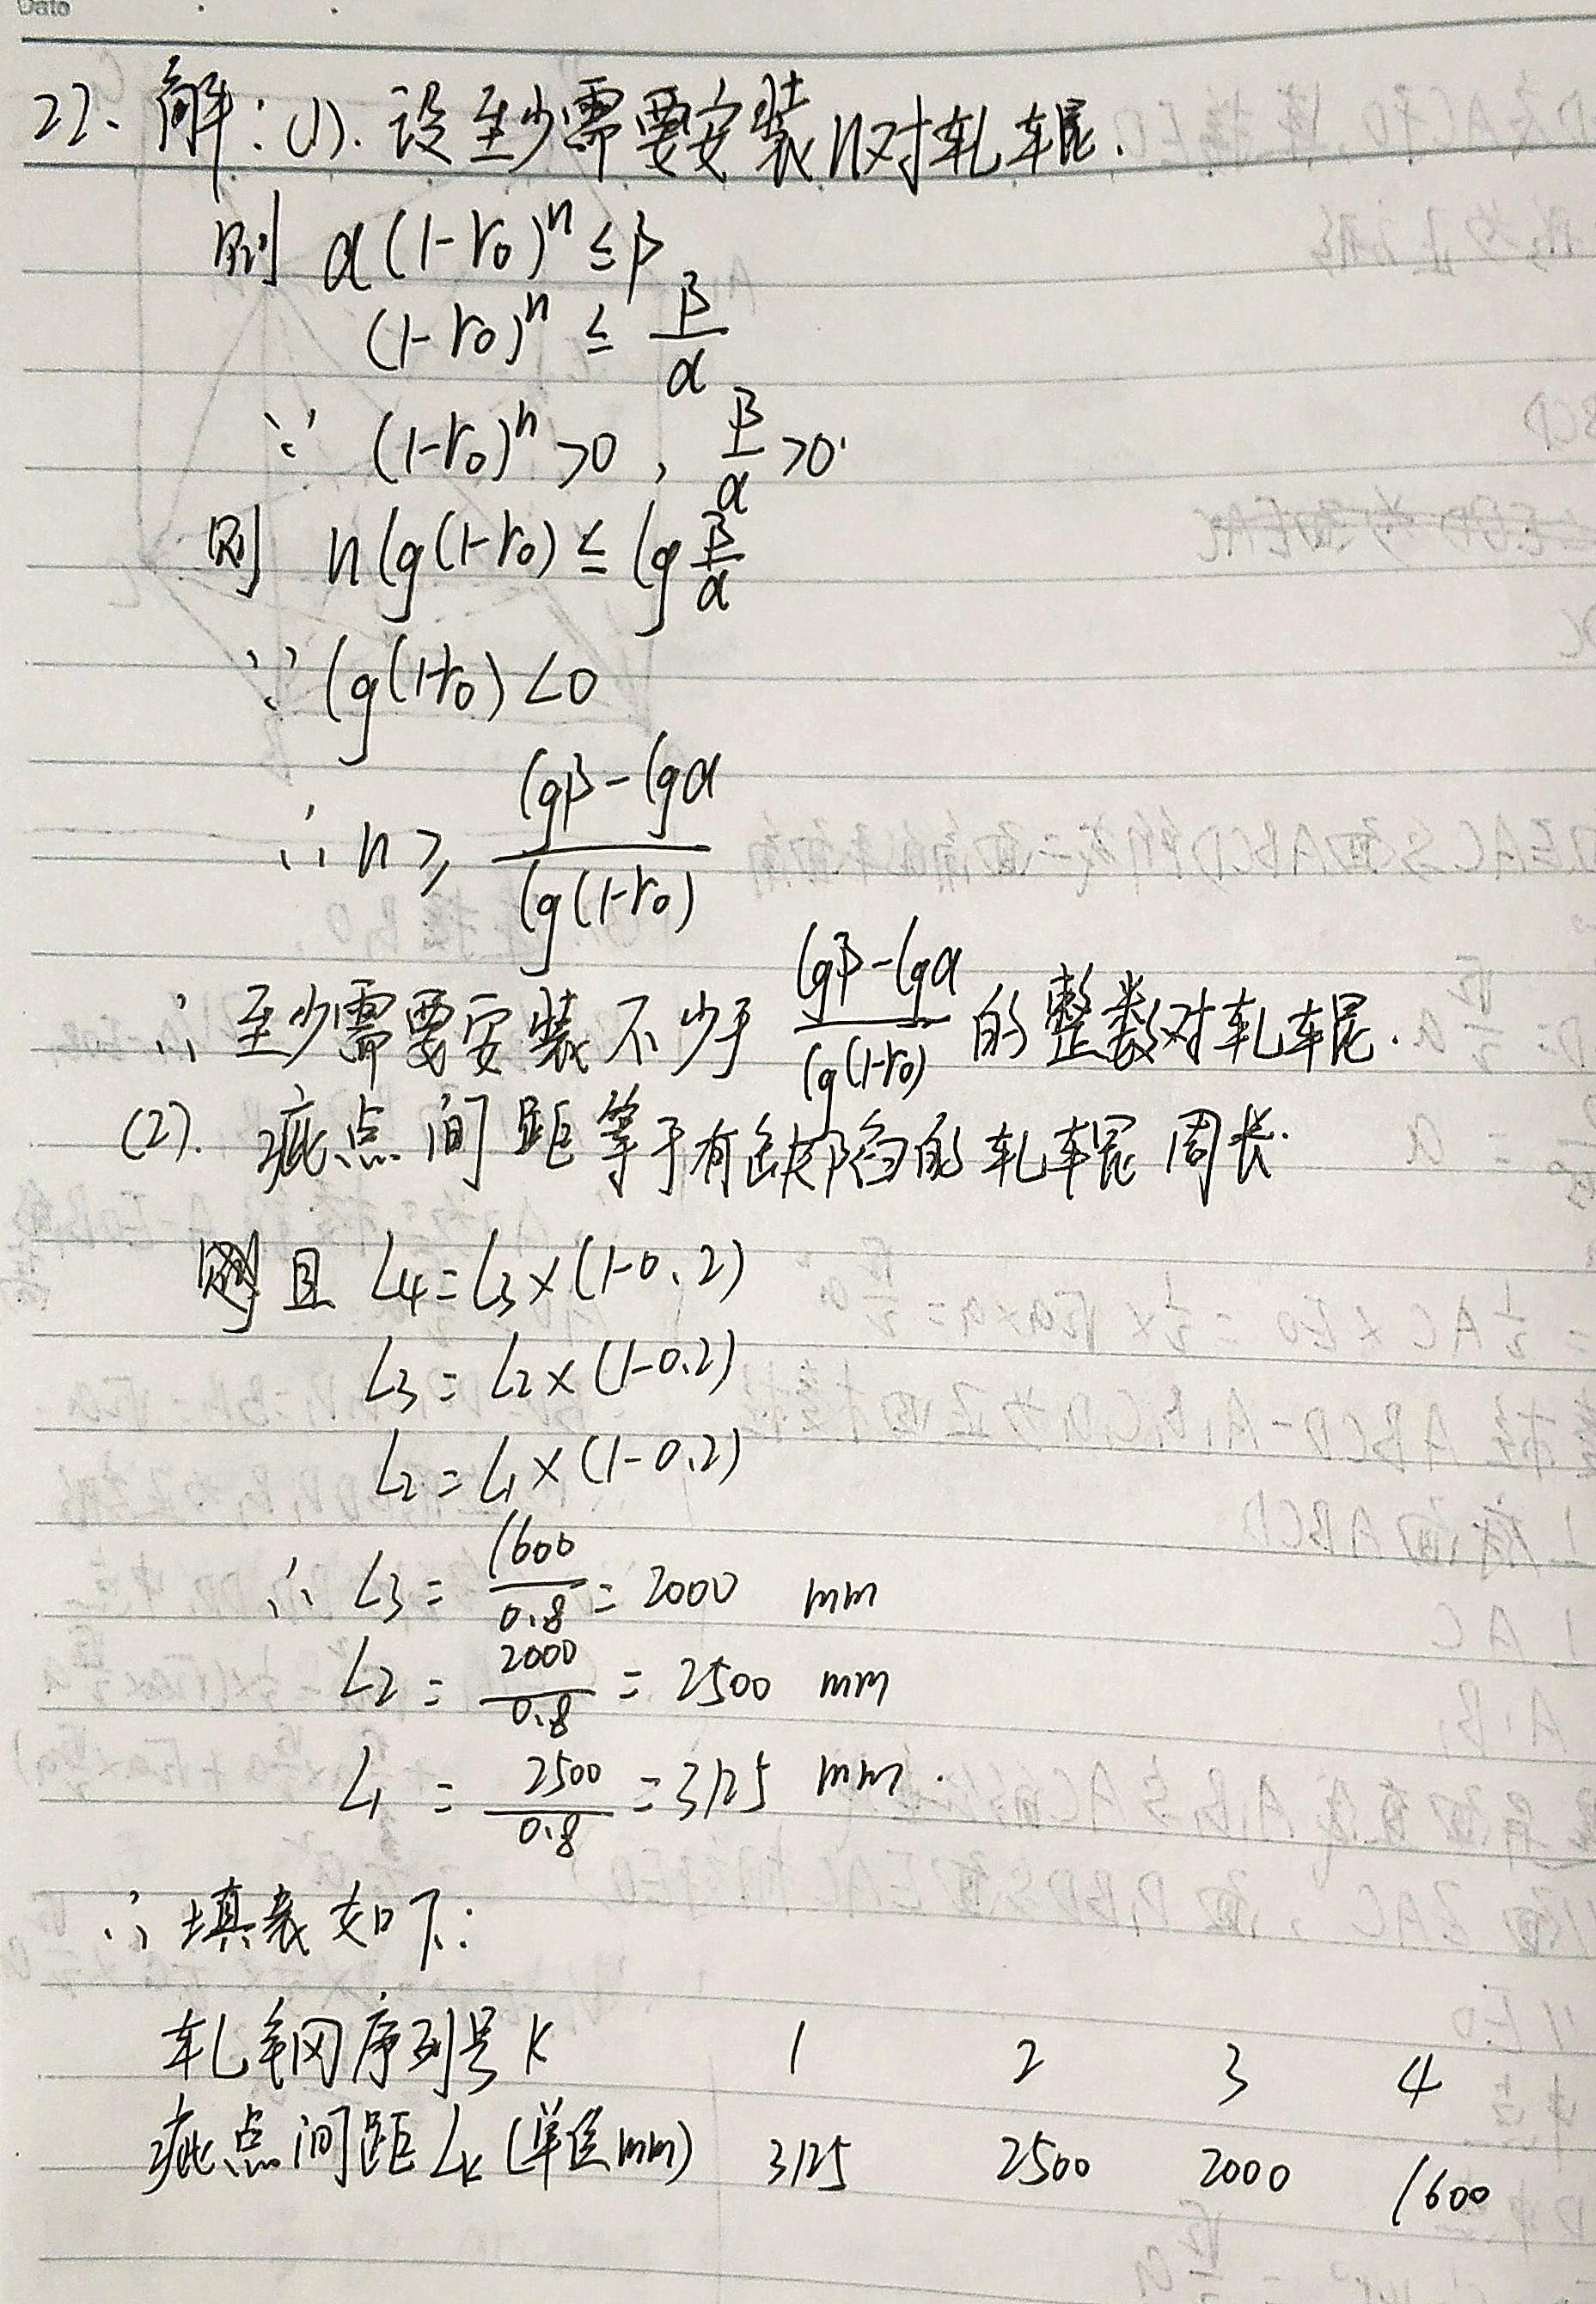 Date
22、解：(1). 设至少需要安装n对轧辊.
则 α(1-r₀)ⁿ ≤ β
(1-r₀)ⁿ ≤ β/α
∵ (1-r₀)ⁿ >0 , β/α >0.
则 nlg(1-r₀) ≤ lg β/α
∵ lg(1-r₀) <0
∴ n ≥ (lgβ-lgα)/(lg(1-r₀))
∴ 至少需要安装不少于 (lgβ-lgα)/(lg(1-r₀)) 的整数对轧辊.
(2). 疵点间距等于有缺陷的轧辊周长.
且 L₄=L₃×(1-0.2)
L₃=L₂×(1-0.2)
L₂=L₁×(1-0.2)
∴ L₃= 1600/0.8 = 2000 mm
L₂ = 2000/0.8 = 2500 mm
L₁ = 2500/0.8 = 3125 mm.
∴ 填表如下：
轧钢序列号 k 1 2 3 4
疵点间距 Lₖ (单位mm) 3125 2500 2000 1600